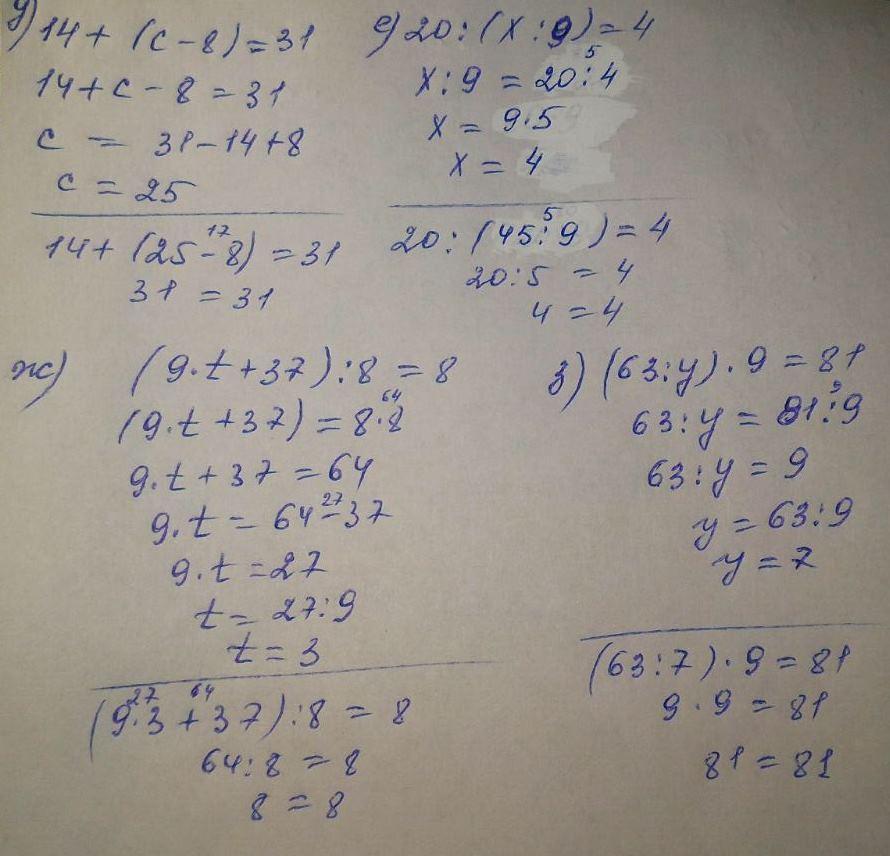 д) 14 + (c - 8) = 31
14 + c - 8 = 31
c = 31 - 14 + 8
c = 25
17
14 + (25 - 8) = 31
31 = 31
е) 20 : (x : 9) = 4
5
x : 9 = 20 : 4
x = 9 · 5
x = 4
5
20 : (45 : 9) = 4
20 : 5 = 4
4 = 4
ж) (9 · t + 37) : 8 = 8
64
(9 · t + 37) = 8 · 8
9 · t + 37 = 64
27
9 · t = 64 - 37
9 · t = 27
t = 27 : 9
t = 3
27 64
(9 · 3 + 37) : 8 = 8
64 : 8 = 8
8 = 8
з) (63 : y) · 9 = 81
9
63 : y = 81 : 9
63 : y = 9
y = 63 : 9
y = 7
(63 : 7) · 9 = 81
9 · 9 = 81
81 = 81